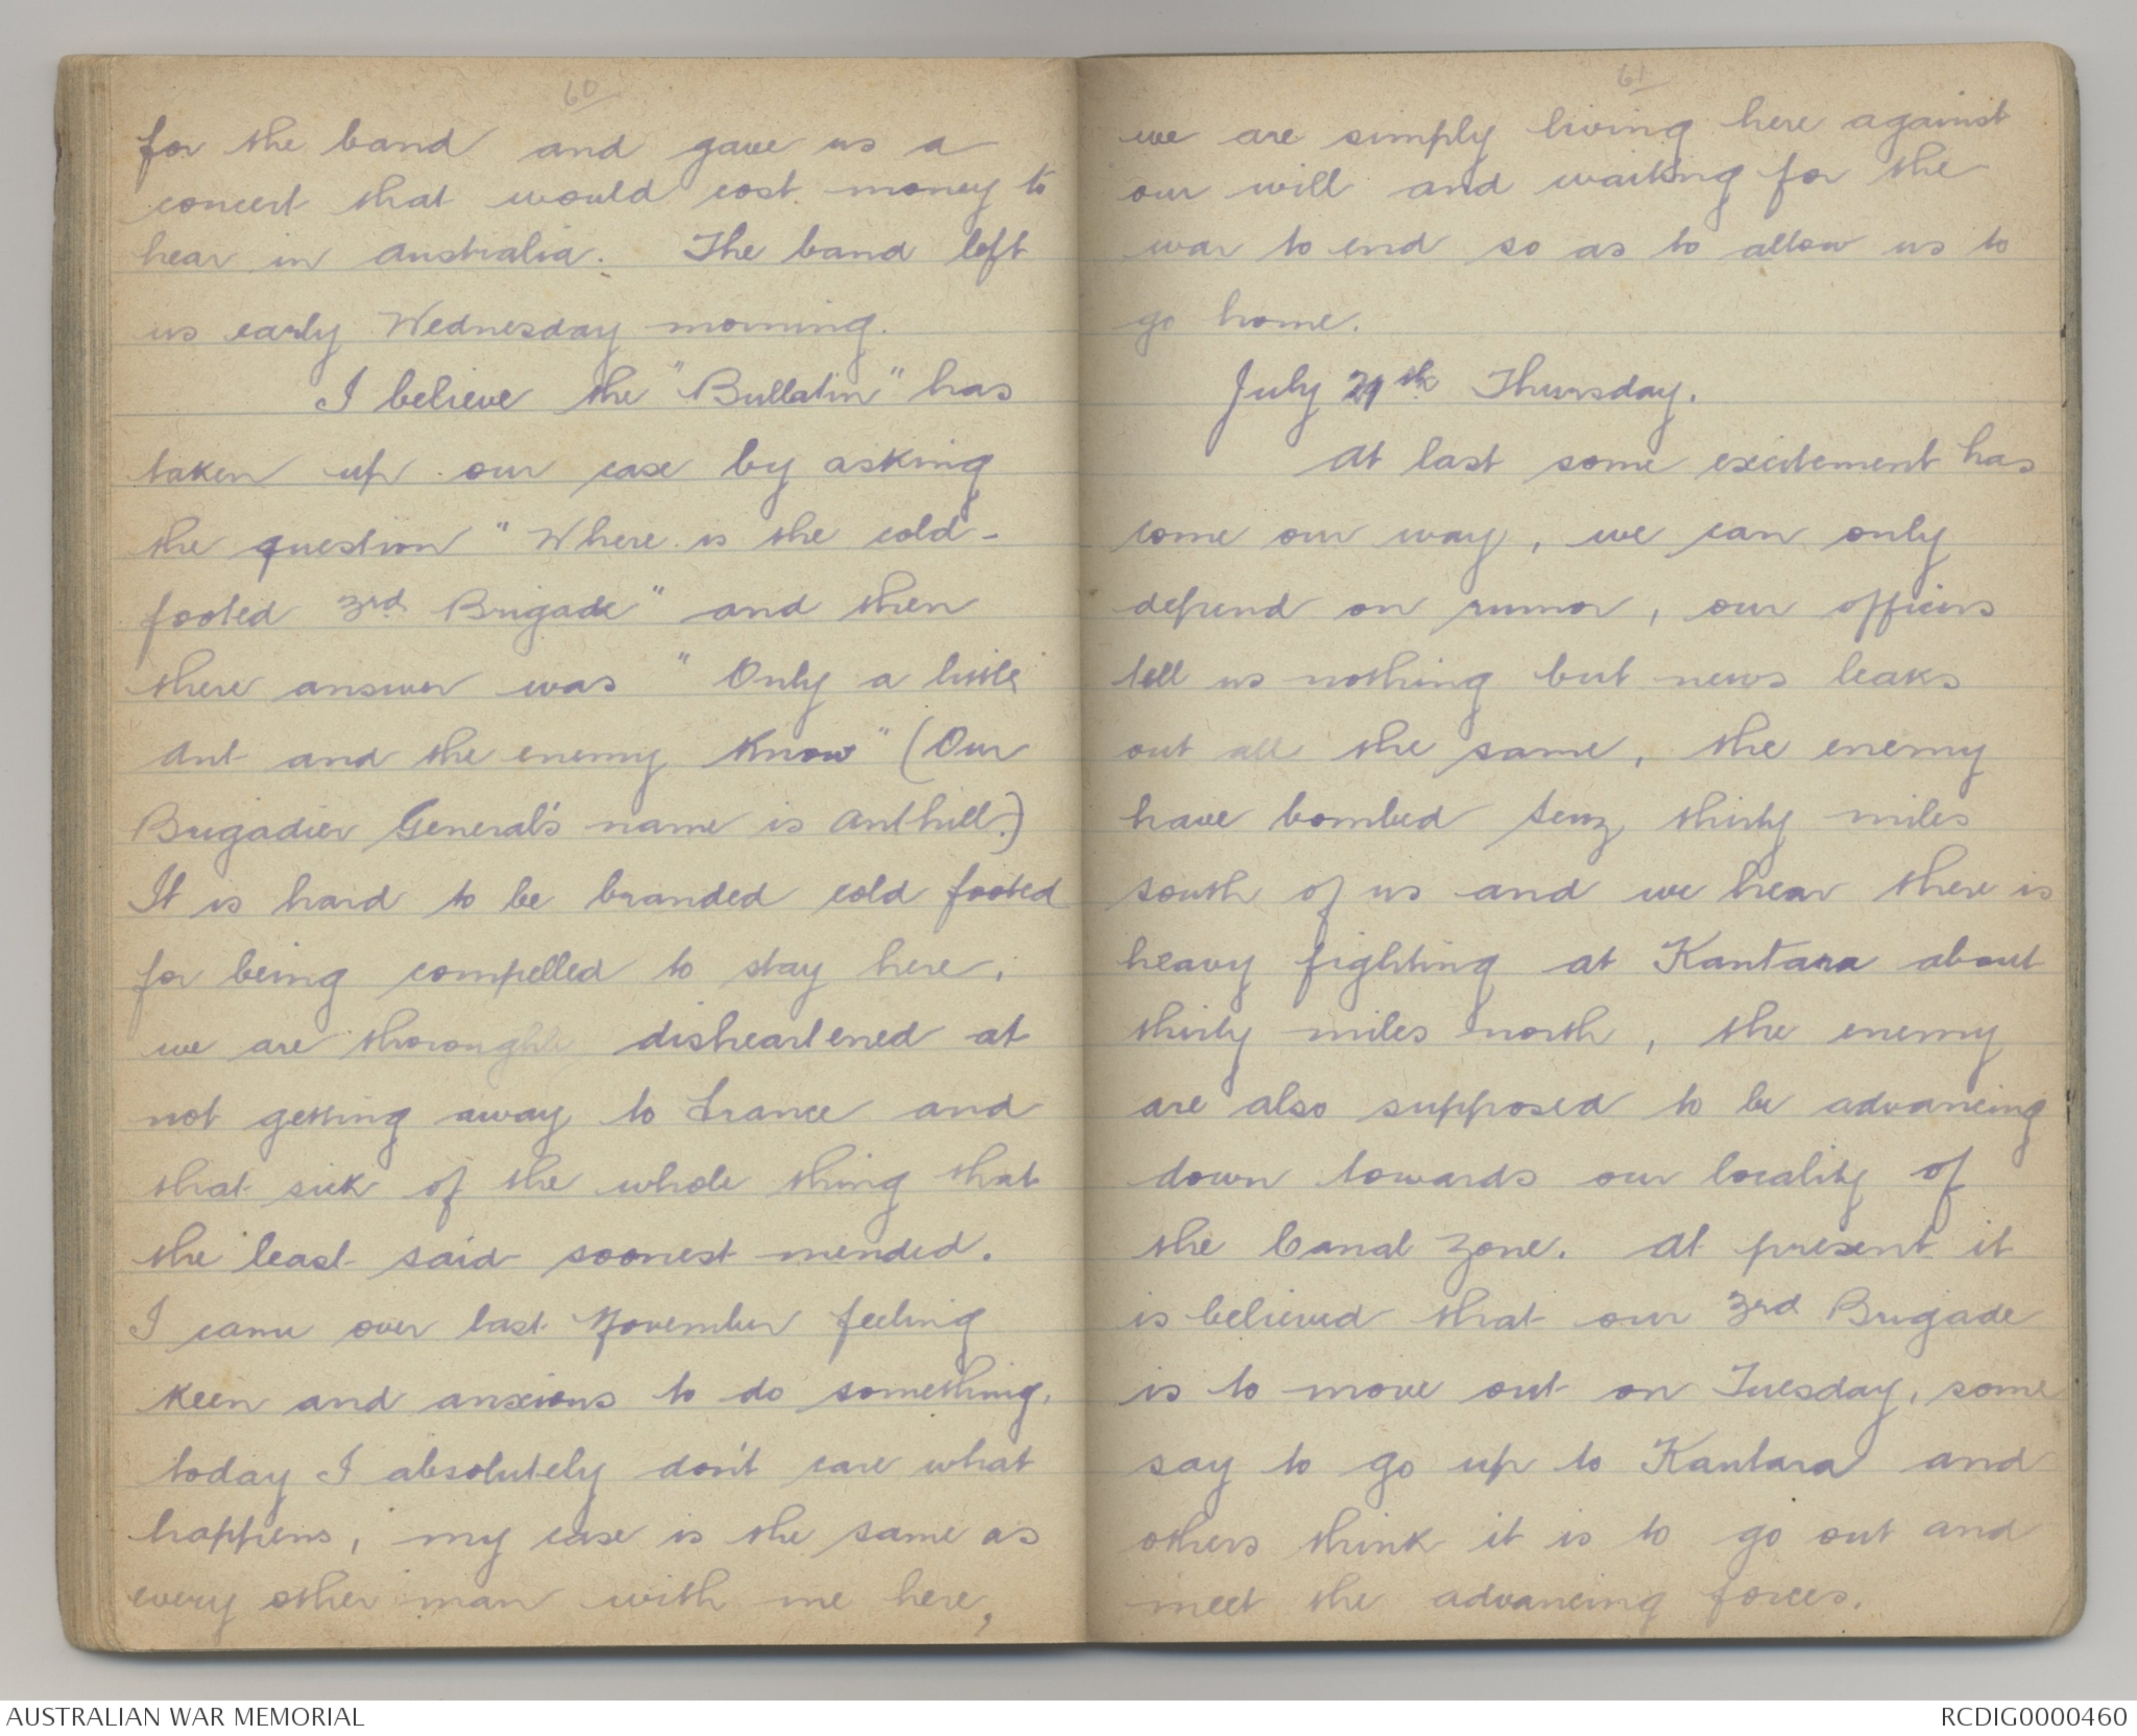 60
for the band and gave us a
concert that would cost money to
hear in Australia. The band left
us early Wednesday morning.
I believe the "Bullatin" has
taken up our case by asking
the question "Where is the cold-
footed 3rd Brigade" and then
there answer was "Only a little
Ant and the enemy know" (Our
Brigadier General's name is Anthill.)
It is hard to be branded cold footed
for being compelled to stay here,
we are thoroughly disheartened at
not getting away to France and
that sick of the whole thing that
the least said soonest mended.
I came over last November feeling
keen and anxious to do something,
today I absolutely don't care what
happens, my case is the same as
every other man with me here,
61
we are simply living here against
our will and waiting for the
war to end so as to allow us to
go home.
July th Thursday.
At last some excitement has
come our way, we can only
depend on rumor, our officers
tell us nothing but news leaks
out all the same, the enemy
have bombed thirty miles
south of us and we hear there is
heavy fighting at Kantara about
thirty miles north, the enemy
are also supposed to be advancing
down towards our locality of
the Canal Zone. At present it
is believed that our 3rd Brigade
is to move out on Tuesday, some
say to go up to Kantara and
others think it is to go out and
meet the advancing forces.
AUSTRALIAN WAR MEMORIAL
RCDIG0000460